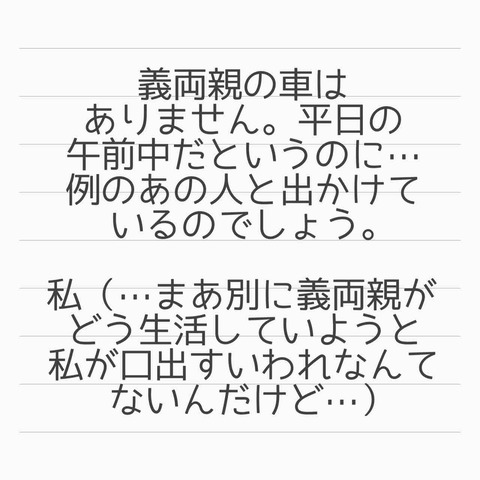 義両親の車は
ありません。平日の
午前中だというのに…
例のあの人と出かけて
いるのでしょう。
私（…まあ別に義両親が
どう生活していようと
私が口出すいわれなんて
ないんだけど…）